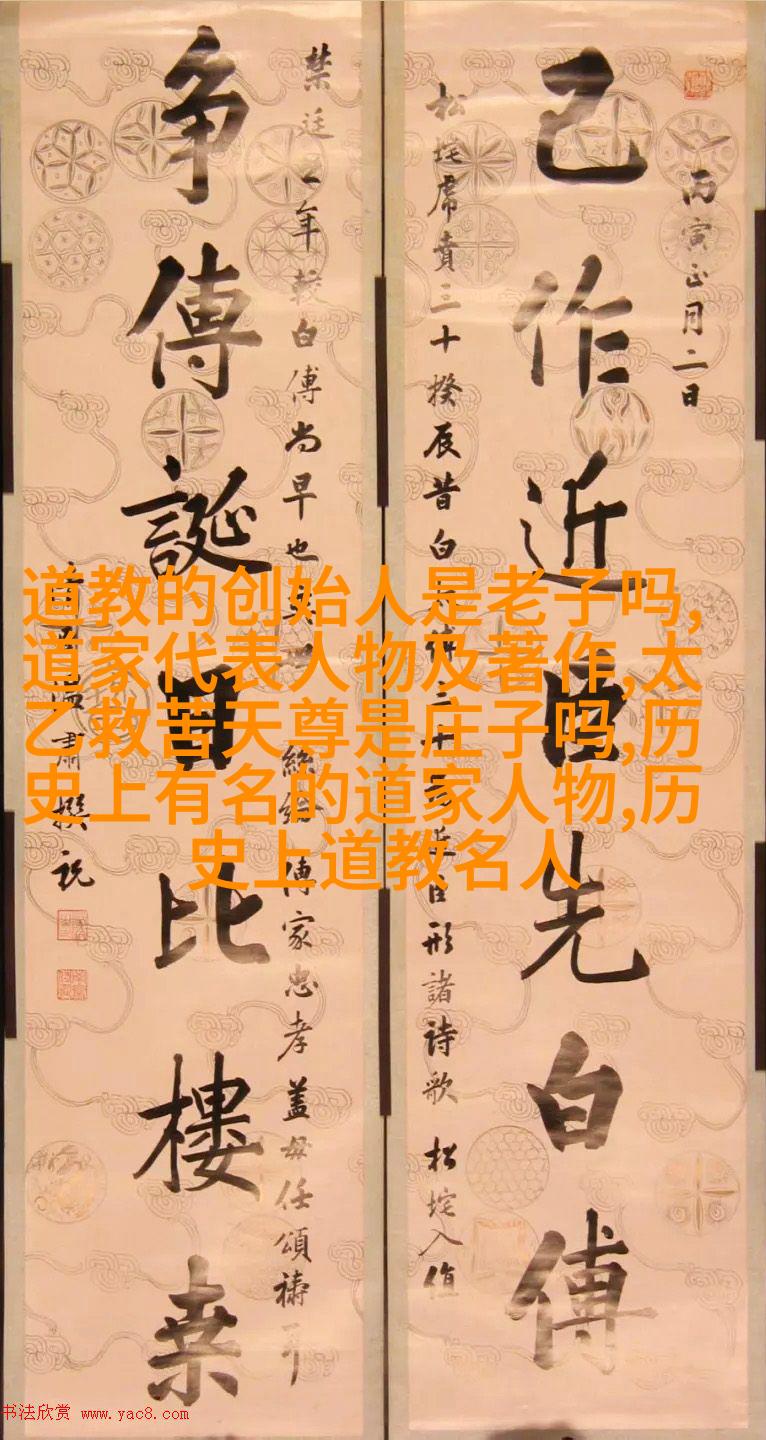 己作近臣先白傅
丙寅正月二日
松垞席賁三十揆辰昔白
形諸詩歌 松垞入值
禁廷五年較白傅尚早也
傳家忠孝蓋毋任頌禱
争傳誕日比樓桑
溫肅撰祝
道教的创始人是老子吗,
道家代表人物及著作,太
乙救苦天尊是庄子吗,历
史上有名的道家人物,历
史上道教名人
书法欣赏 www.yac8.com